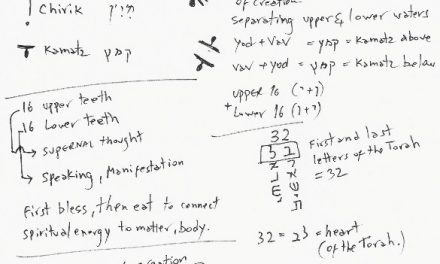 Chirik
Kamatz קמץ
16 upper teeth
16 Lower teeth
supernal thought
Speaking, Manifestation
First bless, then eat to connect
spiritual energy to matter, body.
creation
of creation.
Separating upper & lower waters
yod + Vav = = Kamatz above
vav + yod = = Kamatz below
upper 16
+ Lower 16
32
First and last
letters of the Torah
= 32
32 = לב = heart
(of the Torah.)